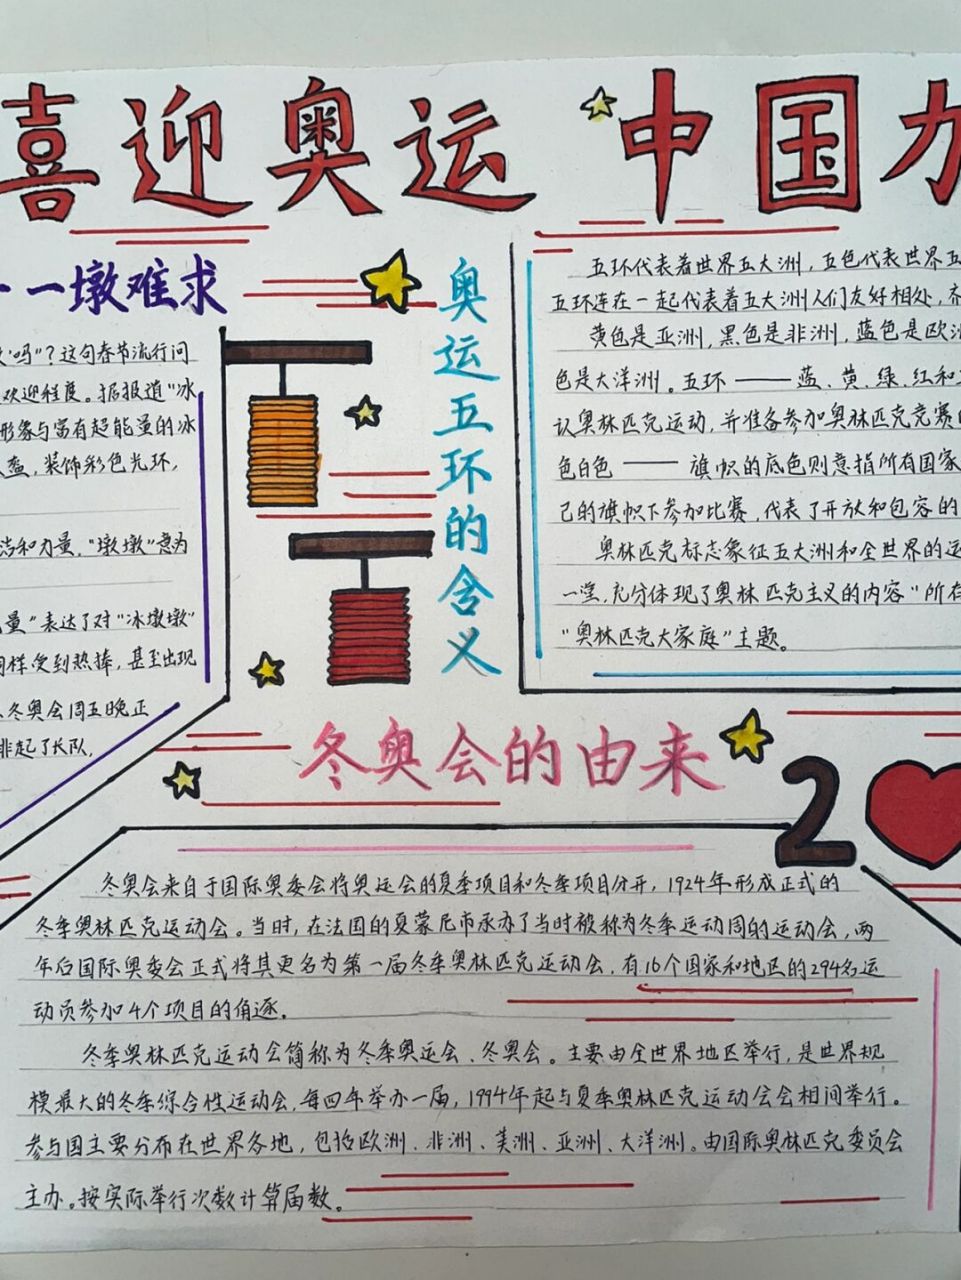 喜迎奥运 中国力
一墩难求
吗"？这句春节流行问
欢迎程度。据报道"冰
形象与富有超能量的冰
盔，装饰彩色光环，
洁和力量，"墩墩"意为
量"表达了对"冰墩墩"
同样受到热捧，甚至出现
冬奥会周五晚正
排起了长队，
奥运五环的含义
五环代表着世界五大洲，五色代表世界五
五环连在一起代表着五大洲人们友好相处，齐
黄色是亚洲，黑色是非洲，蓝色是欧洲
色是大洋洲。五环——蓝、黄、绿、红和
认奥林匹克运动，并准备参加奥林匹克竞赛的
色白色——旗帜的底色则意指所有国家
己的旗帜下参加比赛，代表了开放和包容的
奥林匹克标志象征五大洲和全世界的运
一堂，充分体现了奥林匹克主义的内容"所有
"奥林匹克大家庭"主题。
冬奥会的由来
2
冬奥会来自于国际奥委会将奥运会的夏季项目和冬季项目分开，1924年形成正式的
冬季奥林匹克运动会。当时，在法国的夏蒙尼市承办了当时被称为冬季运动周的运动会，两
年后国际奥委会正式将其更名为第一届冬季奥林匹克运动会，有16个国家和地区的294名运
动员参加4个项目的角逐。
冬季奥林匹克运动会简称为冬季奥运会、冬奥会。主要由全世界地区举行，是世界规
模最大的冬季综合性运动会，每四年举办一届，1994年起与夏季奥林匹克运动会会相间举行。
参与国主要分布在世界各地，包括欧洲、非洲、美洲、亚洲、大洋洲。由国际奥林匹克委员会
主办。按实际举行次数计算届数。